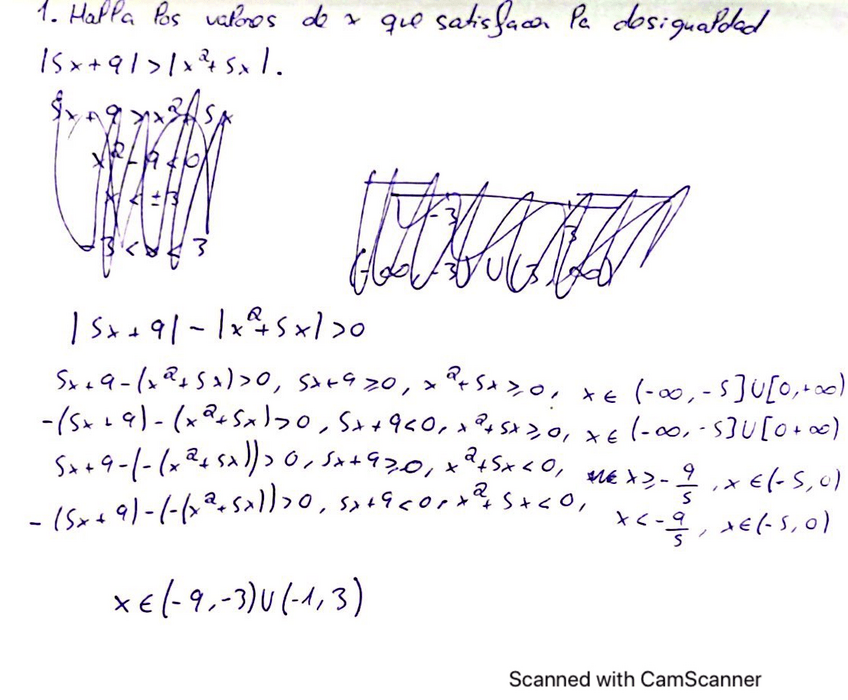 1. Halla los valores de x que satisfacen la desigualdad
|5x+9|>|x²+5x|.
5x+9>x²+5x
x²-9<0
x<±3
-3<x<3
-3 3
(-∞,-3)∪(3,∞)
|5x+9|-|x²+5x|>0
5x+9-(x²+5x)>0, 5x+9≥0, x²+5x≥0, x∈(-∞,-5]∪[0,+∞)
-(5x+9)-(x²+5x)>0, 5x+9<0, x²+5x≥0, x∈(-∞,-5]∪[0+∞)
5x+9-(-(x²+5x))>0, 5x+9≥0, x²+5x<0, x≥-9/5, x∈(-5,0)
-(5x+9)-(-(x²+5x))>0, 5x+9<0, x²+5x<0, x<-9/5, x∈(-5,0)
x∈(-9,-3)∪(-1,3)
Scanned with CamScanner